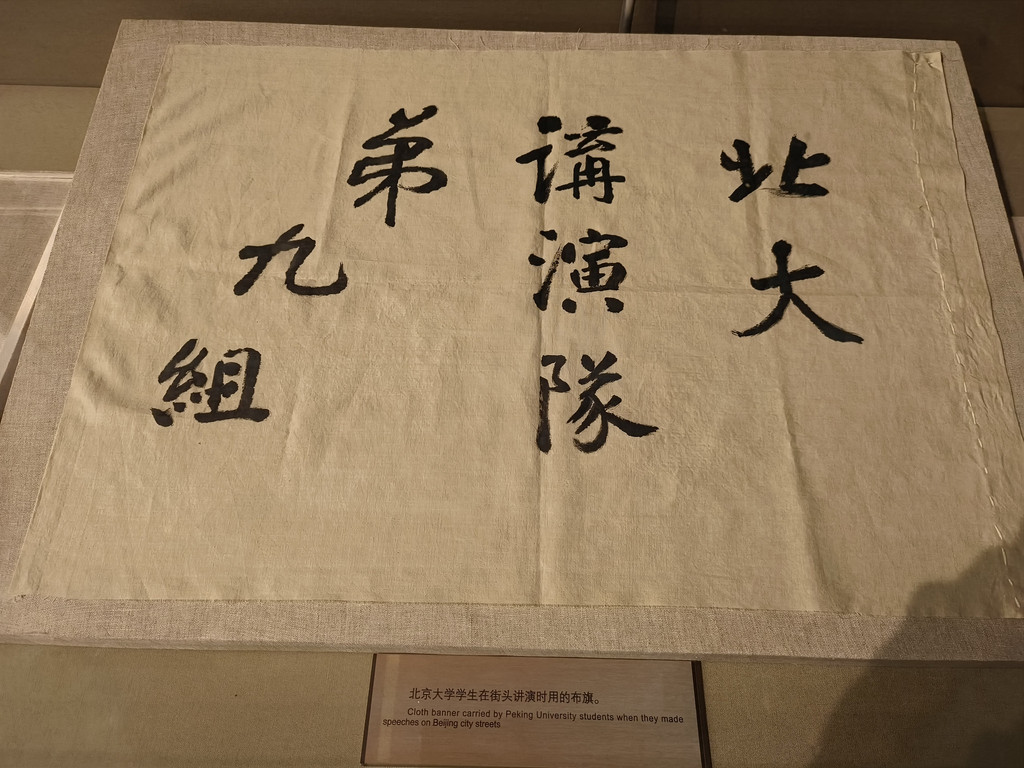 北大
講演隊
第九組
北京大学学生在街头讲演时用的布旗。
Cloth banner carried by Peking University students when they made
speeches on Beijing city streets